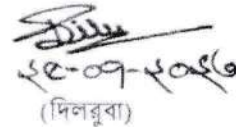 ২৫-০৭-২০২৩
(দিলরুবা)